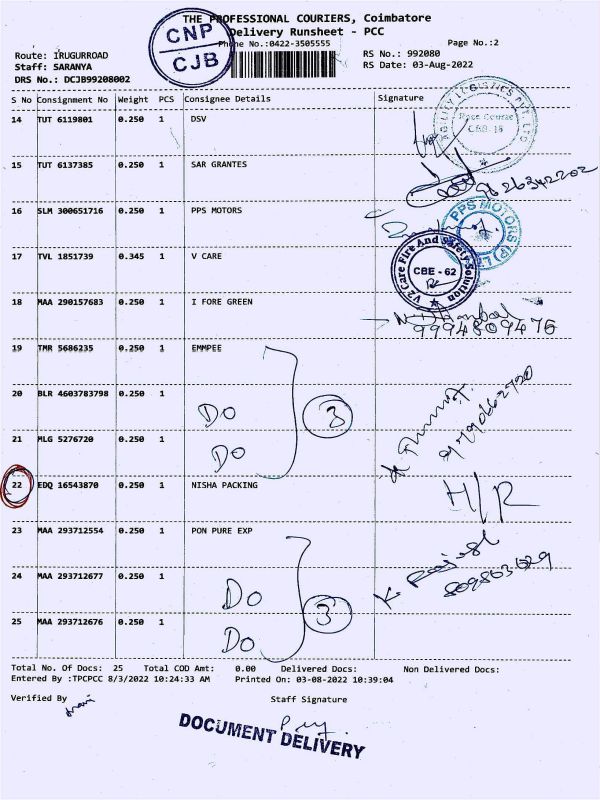 THE PROFESSIONAL COURIERS, Coimbatore
Delivery Runsheet - PCC
CNP
CJB
Phone No.:0422-3505555
Page No.:2
Route: IRUGURROAD
RS No.: 992080
Staff: SARANYA
RS Date: 03-Aug-2022
DRS No.: DCJB99208002
S No Consignment No Weight PCS Consignee Details Signature
14 TUT 6119801 0.250 1 DSV
AGILITY LOGISTICS PVT. LTD
Race Course
CBE-18
15 TUT 6137385 0.250 1 SAR GRANTES
16 SLM 300651716 0.250 1 PPS MOTORS
PPS MOTORS (P) LTD
17 TVL 1851739 0.345 1 V CARE
V2 Care Fire And Safety Solution
CBE - 62
18 MAA 290157683 0.250 1 I FORE GREEN
9994809476
19 TMR 5686235 0.250 1 EMMPEE
20 BLR 4603783798 0.250 1 Do 3
21 MLG 5276720 0.250 1 Do
22 EDQ 16543870 0.250 1 NISHA PACKING H/R
23 MAA 293712554 0.250 1 PON PURE EXP
24 MAA 293712677 0.250 1 Do 3
25 MAA 293712676 0.250 1 Do
Total No. Of Docs: 25 Total COD Amt: 0.00 Delivered Docs: Non Delivered Docs:
Entered By :TPCPCC 8/3/2022 10:24:33 AM Printed On: 03-08-2022 10:39:04
Verified By Staff Signature
DOCUMENT DELIVERY